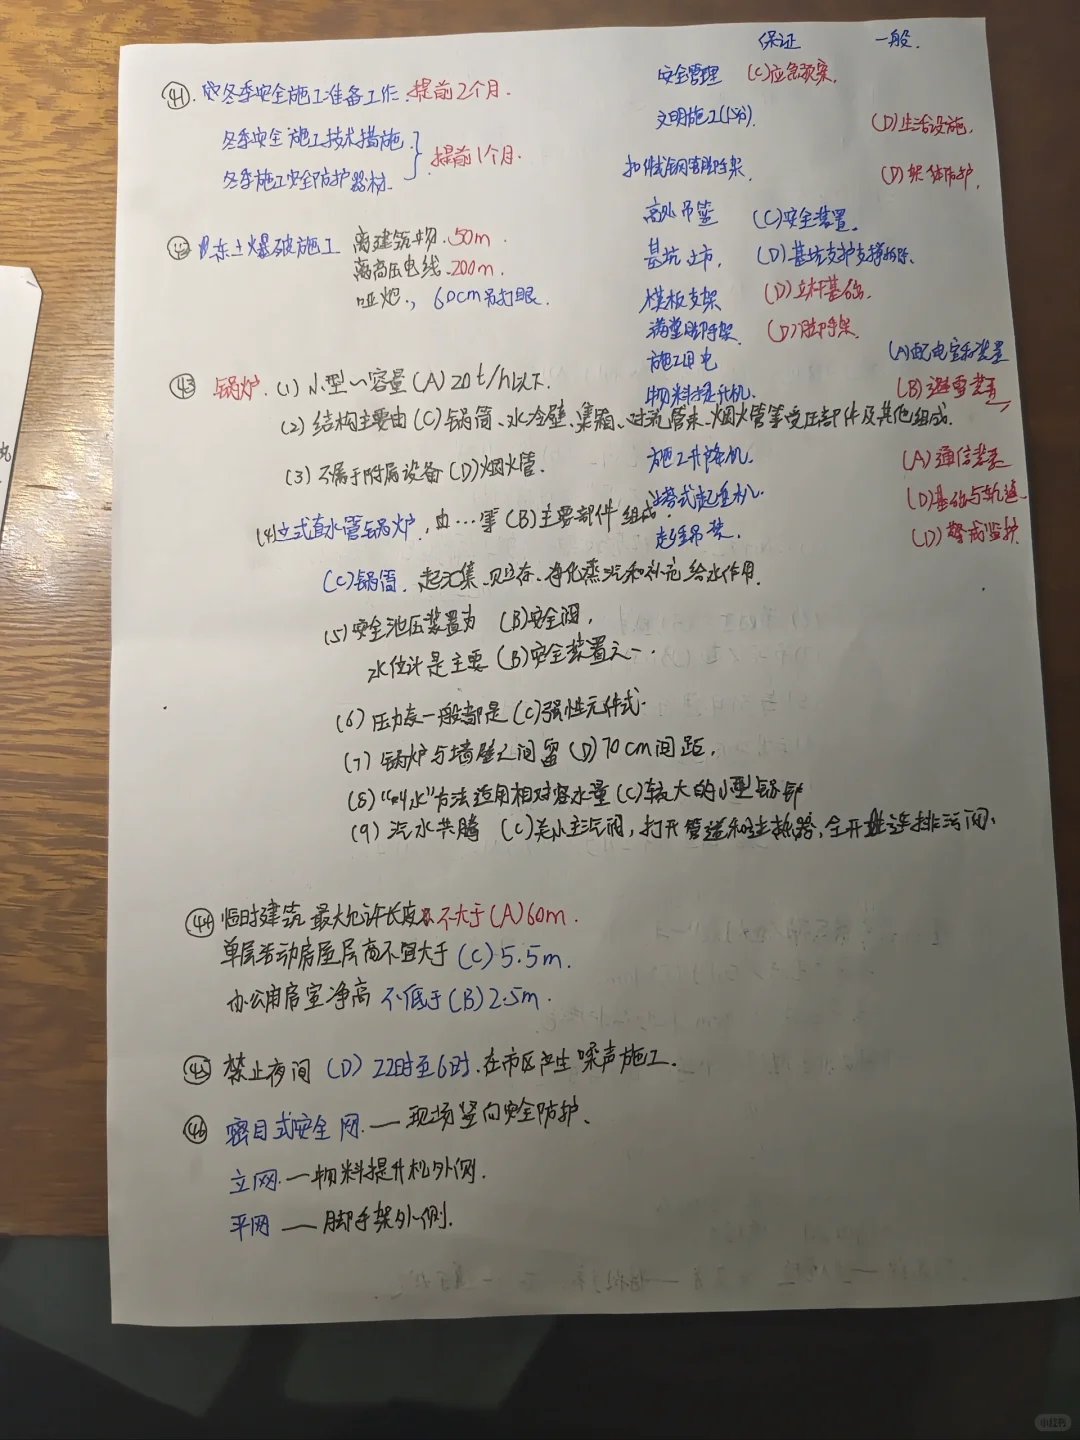 保证 一般.
㊶.冬季安全施工准备工作.提前2个月.
冬季安全施工技术措施.
冬季施工安全防护器材.
提前1个月.
安全管理 (C)应急预案.
文明施工 (D)生活设施.
扣件式钢管脚手架. (D)架体防护.
高处吊篮 (C)安全装置.
基坑 (D)基坑支护支撑拆除.
模板支架 (D)立杆基础.
满堂脚手架. (D)脚手架.
施工用电 (A)配电室和装置
物料提升机. (B)避雷装置
施工升降机. (A)通信装置
塔式起重机. (D)基础与轨道
起重吊装. (D)警戒监护.
㊷冻土爆破施工 离建筑物.50m.
离高压电线.200m.
哑炮., 60cm另打眼.
㊸ 锅炉.(1)小型~容量(A)20t/h以下.
(2)结构主要由(C)锅筒、水冷壁、集箱、对流管束、烟火管等受压部件及其他组成.
(3)不属于附属设备(D)烟火管.
(4)立式直水管锅炉,由…等(B)主要部件组成.
(C)锅筒. 起汇集、贮存、净化蒸汽和补充给水作用.
(5)安全泄压装置为 (B)安全阀,
水位计是主要(B)安全装置之一.
(6)压力表一般都是(C)弹性元件式.
(7)锅炉与墙壁之间留(D)70cm间距.
(8)"叫水"方法适用相对容水量(C)较大的小型锅炉
(9)汽水共腾 (C)关小主汽阀,打开管道和过热器,全开连排污阀.
㊹临时建筑 最大允许长度 不大于(A)60m.
单层活动房屋层高不宜大于(C)5.5m.
办公用房室净高 不低于(B)2.5m.
㊺ 禁止夜间(D)22时至6时.在市区产生噪声施工.
㊻ 密目式安全网.—现场竖向安全防护、
立网.—物料提升机外侧.
平网 — 脚手架外侧.
小红书